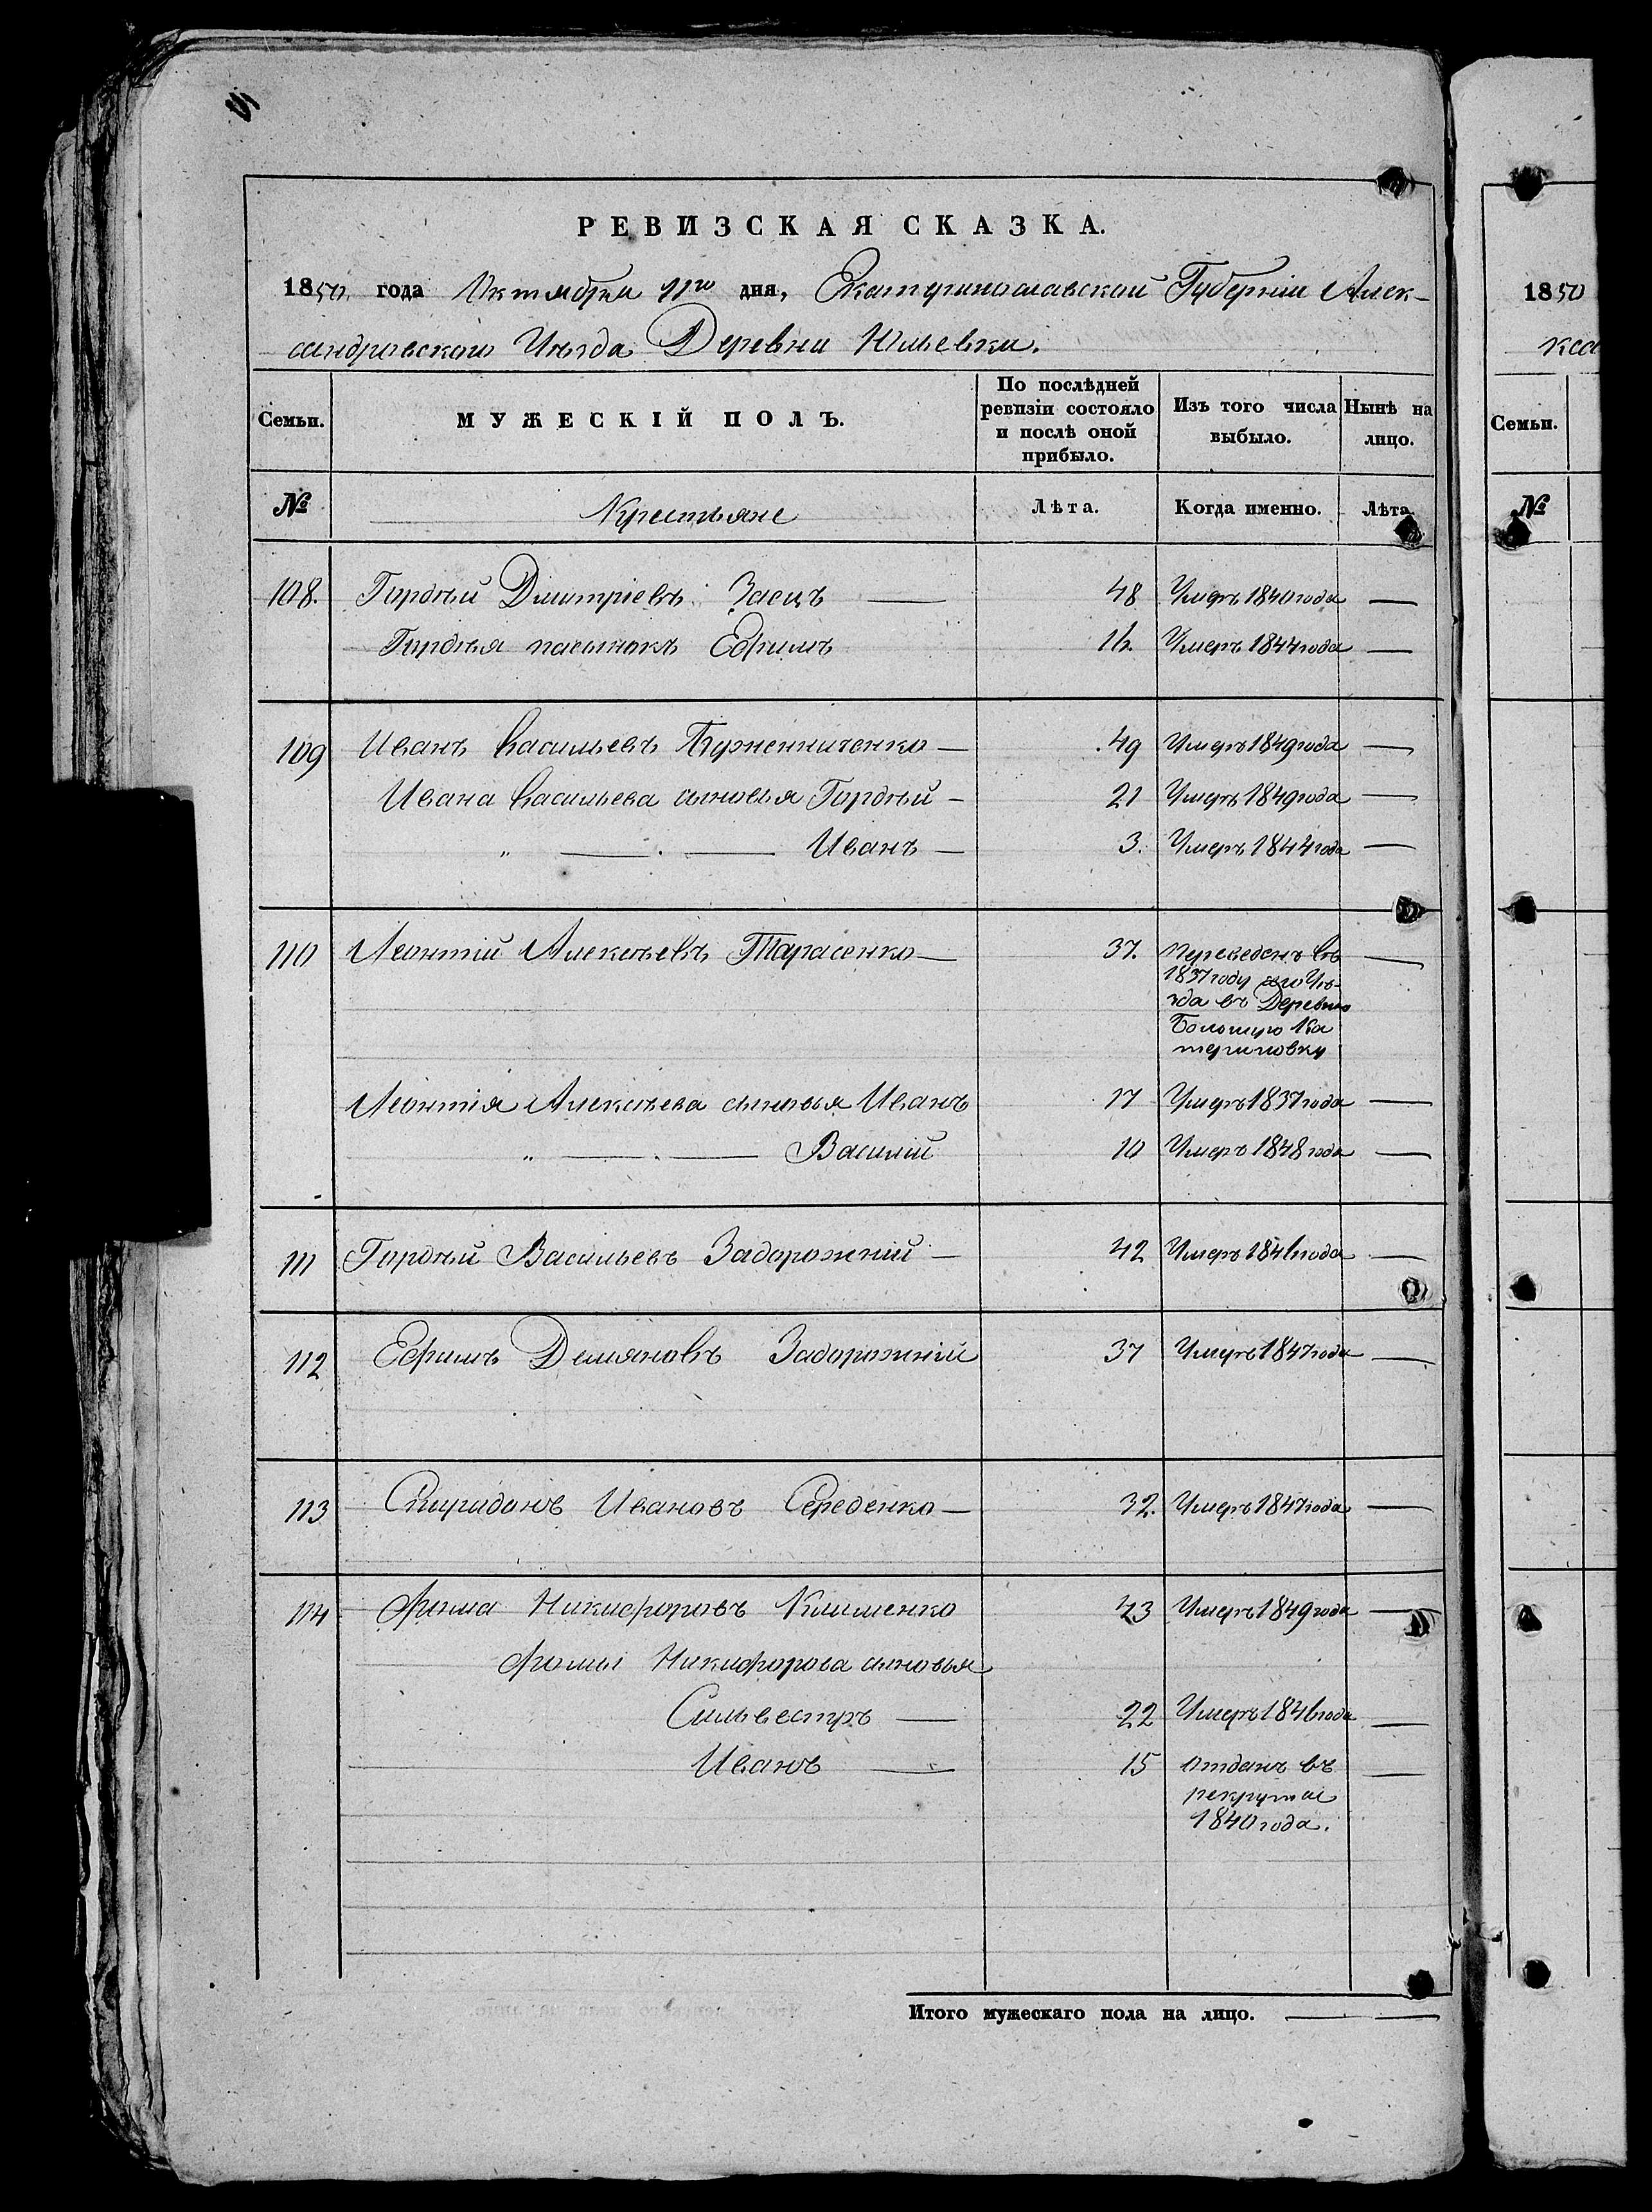 РЕВИЗСКАЯ СКАЗКА.
1850 года Октября 11го дня, Екатеринославской Губерніи Алек-
сандровского Уѣзда Деревни Юльевки.
Семьи. МУЖЕСКІЙ ПОЛЪ. По послѣдней ревизіи состояло и послѣ оной прибыло. Изъ того числа выбыло. Нынѣ на лицо.
№ Крестьяне Лѣта. Когда именно. Лѣта.
108. Гордѣй Дмитріевъ Заецъ — 48 Умеръ 1840 года —
Гордѣя пасынокъ Ефимъ 16. Умеръ 1844 года —
109 Иванъ Васильевъ — 49 Умеръ 1849 года —
Ивана Васильева сыновья Гордѣй — 21 Умеръ 1849 года —
„ — . — Иванъ — 3. Умеръ 1844 года —
110 Леонтій Алексѣевъ Тарасенко — 37. Переведенъ въ —
1837 году сего Уѣ-
зда въ Деревню
Большую Ка
териновку
Леонтія Алексѣева сыновья Иванъ 17 Умеръ 1837 года —
„ — . — Василій 10 Умеръ 1848 года —
111 Гордѣй Васильевъ Задорожній — 42 Умеръ 1846 года —
112 Ефимъ Демяновъ Задорожній 37 Умеръ 1847 года —
113 Спиридонъ Ивановъ Середенко — 32. Умеръ 1847 года —
114 Фома Никифоровъ Клименко 43 Умеръ 1849 года —
Фомы Никифорова сыновья
Сильвестръ — 22 Умеръ 1846 года —
Иванъ — 15 отданъ въ —
рекруты
1840 года.
Итого мужескаго пола на лицо. — —
1850
кса
Семьи.
№